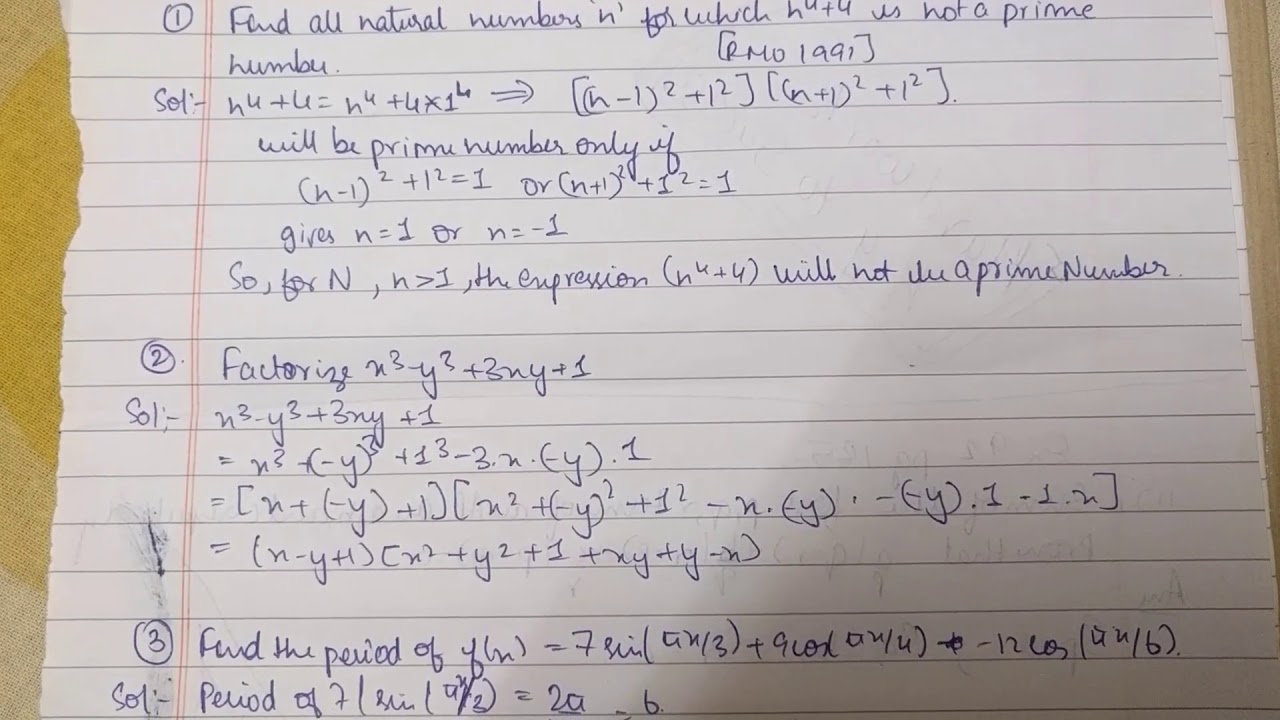 ① Find all natural numbers 'n' for which n⁴+4 is not a prime
number. [RMO 1991]
Sol:- n⁴+4 = n⁴+4×1⁴ ⇒ [(n-1)²+1²][(n+1)²+1²].
will be prime number only if
(n-1)²+1²=1 or (n+1)²+1²=1
gives n=1 or n=-1
So, for N, n>1, the expression (n⁴+4) will not be a prime Number.
②. Factorize x³-y³+3xy+1
Sol:- x³-y³+3xy+1
= x³+(-y)³+1³-3.x.(-y).1
= [x+(-y)+1][x²+(-y)²+1²-x.(-y).-(-y).1-1.x]
= (x-y+1)[x²+y²+1+xy+y-x)
③ Find the period of f(x) = 7 sin(πx/3)+9cos(πx/4) -12 cos(πx/6).
Sol:- Period of 7(sin(πx/3) = 2π = 6.